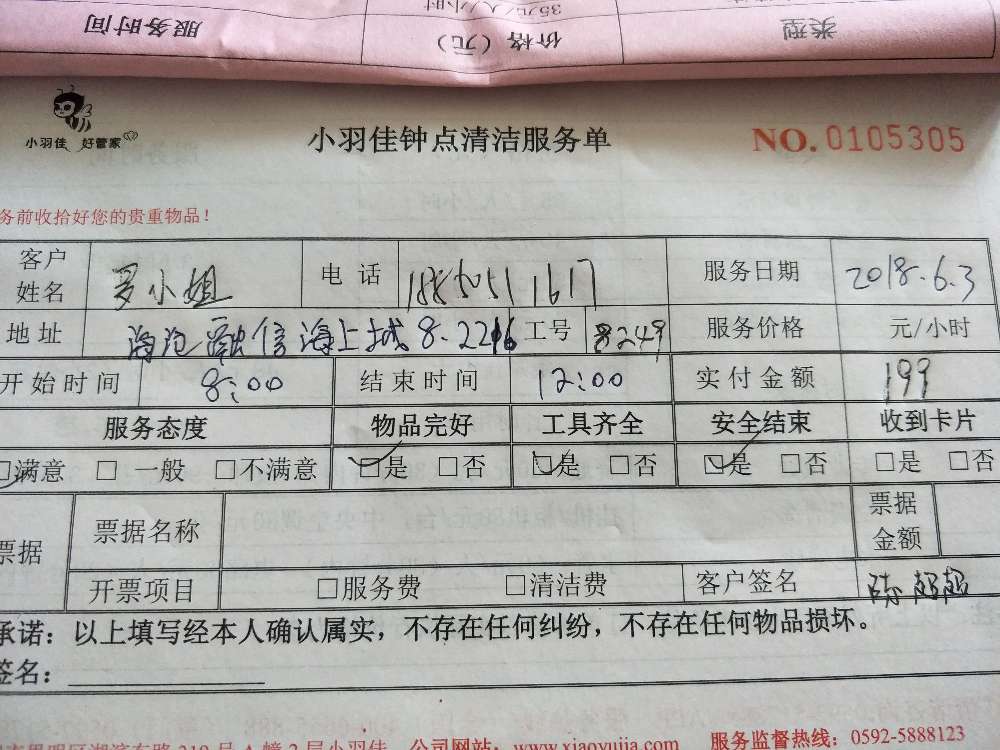 35元/人/小时
服务时间 价格（元） 类型
小羽佳 好管家
小羽佳钟点清洁服务单 NO.0105305
务前收拾好您的贵重物品！
客户姓名 罗小姐 电话 18850511617 服务日期 2018.6.3
地址 海沧融信海上城8.2216 工号 8249 服务价格 元/小时
开始时间 8:00 结束时间 12:00 实付金额 199
服务态度 物品完好 工具齐全 安全结束 收到卡片
□满意 □一般 □不满意 □是 □否 □是 □否 □是 □否 □是 □否
票据 票据名称 票据金额
开票项目 □服务费 □清洁费 客户签名 陈超超
承诺：以上填写经本人确认属实，不存在任何纠纷，不存在任何物品损坏。
签名：
公司网站：www.xiaoyujia.com 服务监督热线：0592-5888123